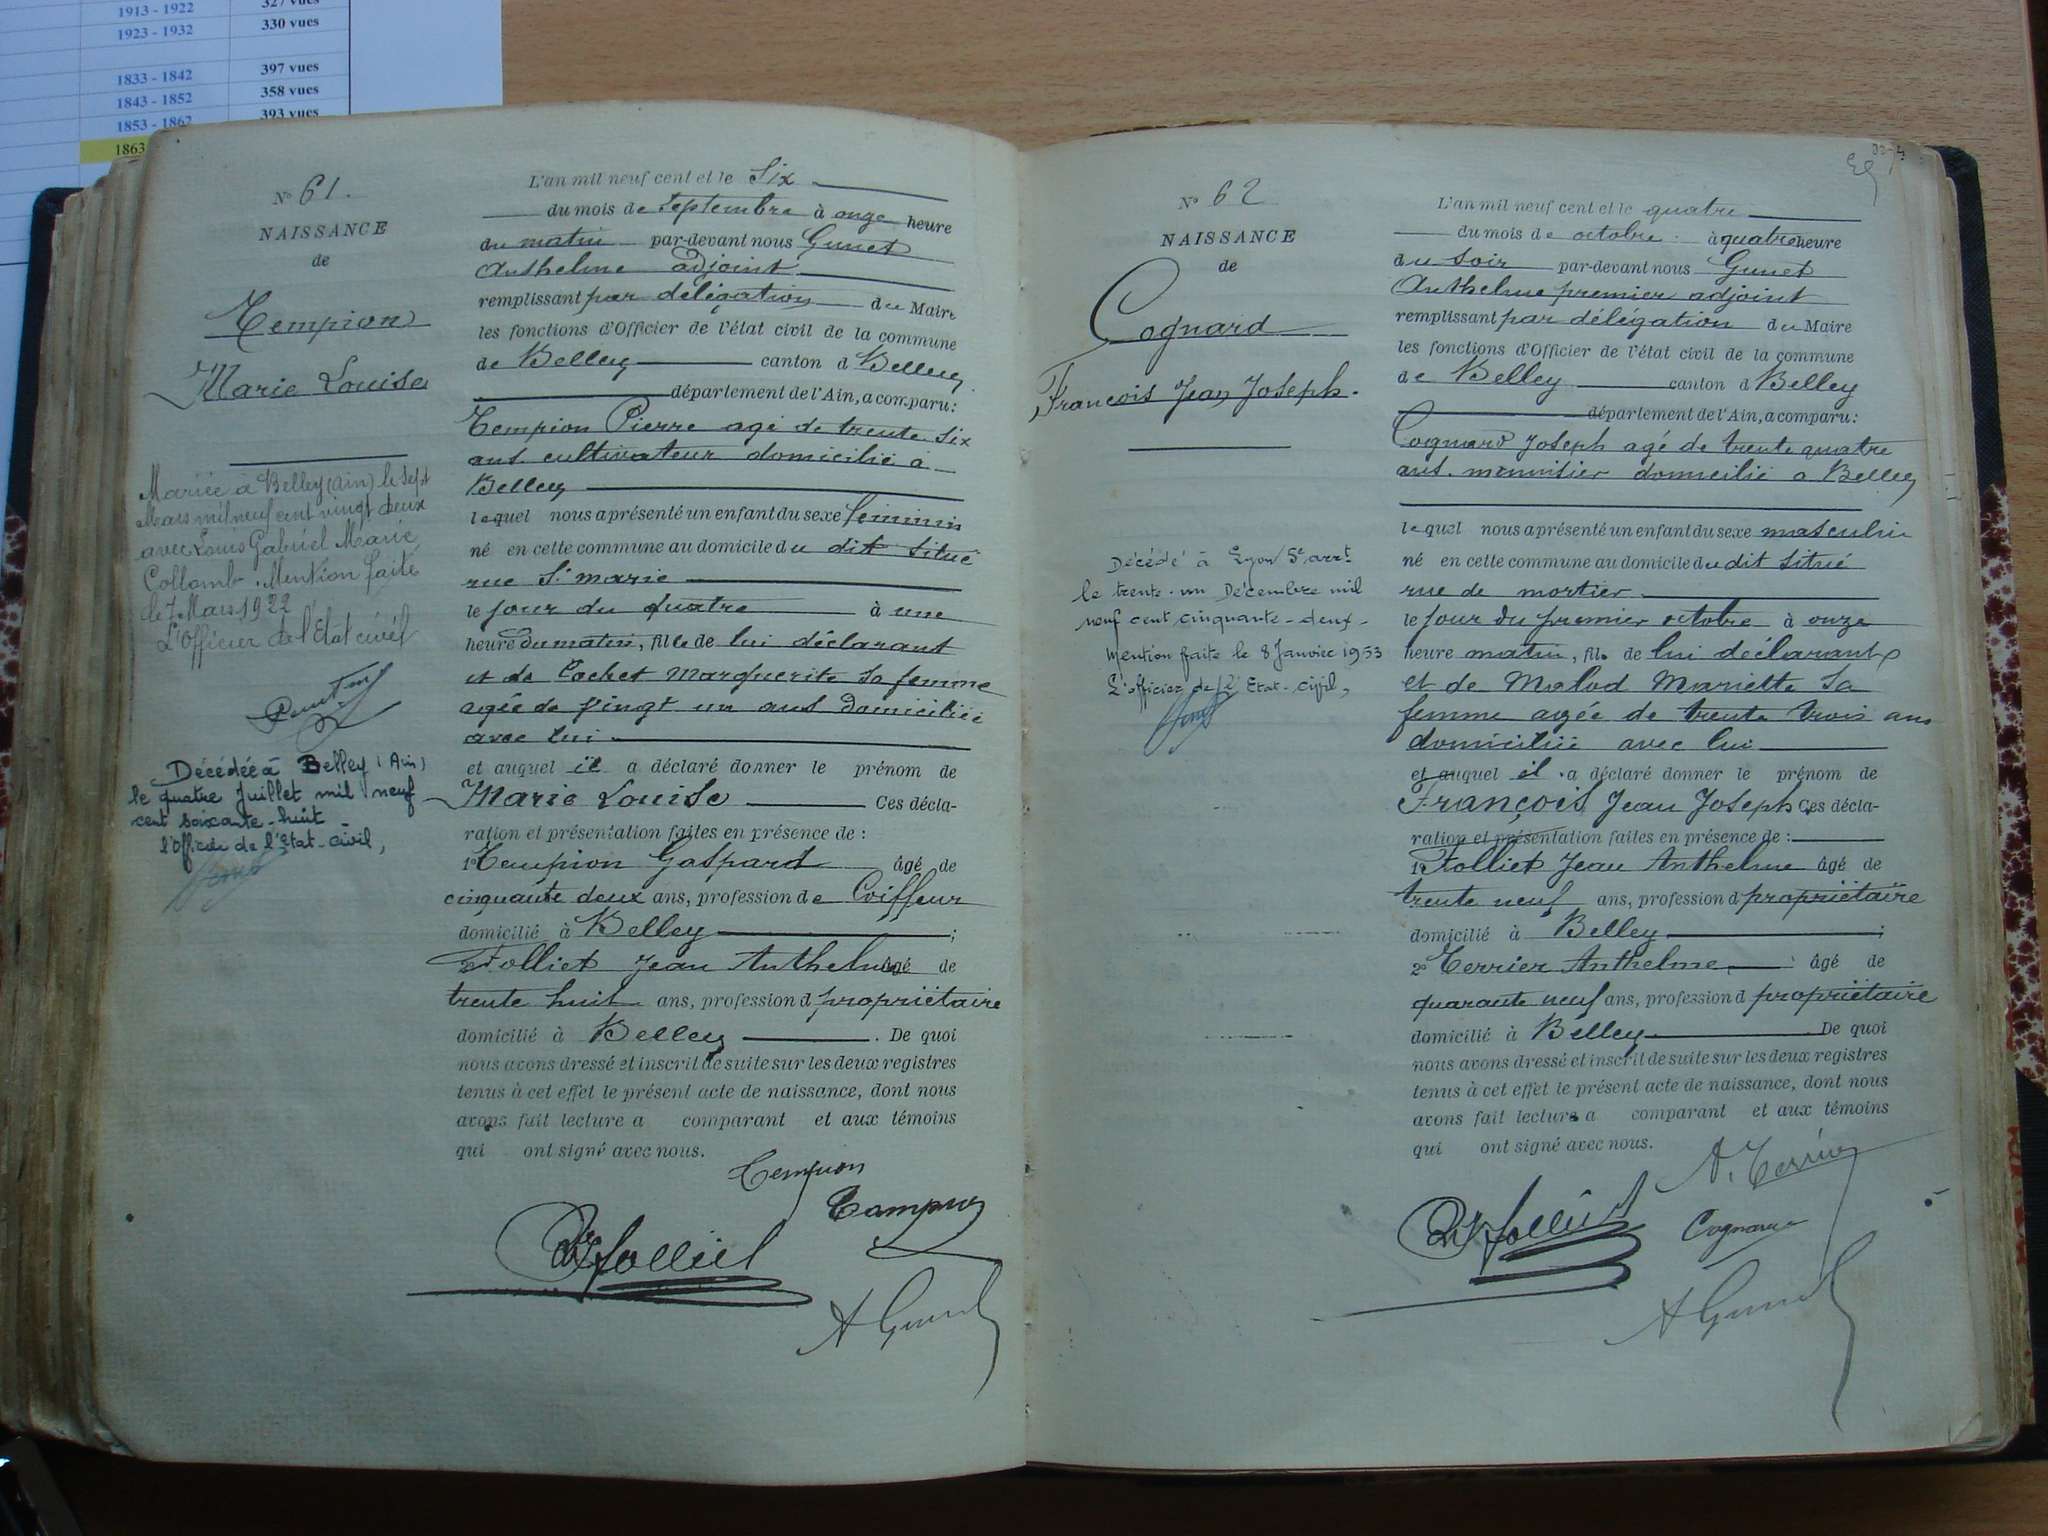 1913 - 1922 327 vues
1923 - 1932 330 vues
1833 - 1842 397 vues
1843 - 1852 358 vues
1853 - 1862 393 vues
1863
No 61.
NAISSANCE
de
Tempion
Marie Louise
Mariée à Belley (Ain) le sept
Mars mil neuf cent vingt deux
avec Louis Gabriel Marie
Collomb. Mention faite
le 7 Mars 1922
L'Officier de l'Etat civil
Décédée à Belley (Ain)
le quatre Juillet mil neuf
cent soixante-huit
l'Officier de l'Etat-civil,
L'an mil neuf cent et le Six
du mois de Septembre à onze heure
du matin par-devant nous Gunet
Anthelme adjoint
remplissant par délégation du Maire
les fonctions d'Officier de l'état civil de la commune
de Belley canton d Belley
département de l'Ain, a comparu:
Tempion Pierre agé de trente six
ans cultivateur domicilié à
Belley
lequel nous a présenté un enfant du sexe feminin
né en cette commune au domicile du dit situé
rue St marie
le jour du quatre à une
heure du matin, fille de lui déclarant
et de Cochet Marguerite sa femme
agée de vingt un ans domiciliée
avec lui
et auquel il a déclaré donner le prénom de
Marie Louise Ces décla-
ration et présentation faites en présence de :
1o Tempion Gaspard âgé de
cinquante deux ans, profession de Coiffeur
domicilié à Belley ;
2o Folliet Jean Anthelme âgé de
trente huit ans, profession d propriétaire
domicilié à Belley . De quoi
nous avons dressé et inscrit de suite sur les deux registres
tenus à cet effet le présent acte de naissance, dont nous
avons fait lecture a comparant et aux témoins
qui ont signé avec nous.
Tempion
Tampion
Folliet
A Gunet
No 62
NAISSANCE
de
Cognard
François Jean Joseph.
Décédé à Lyon 5e arrt
le trente-un Décembre mil
neuf cent cinquante-deux-
Mention faite le 8 Janvier 1953
L'officier de l'Etat-civil,
L'an mil neuf cent et le quatre
du mois de octobre à quatre heure
du soir par-devant nous Gunet
Anthelme premier adjoint
remplissant par délégation du Maire
les fonctions d'Officier de l'état civil de la commune
de Belley canton d Belley
département de l'Ain, a comparu:
Cognard Joseph agé de trente quatre
ans. menuisier domicilié a Belley
lequel nous a présenté un enfant du sexe masculin
né en cette commune au domicile du dit situé
rue de mortier
le jour du premier octobre à onze
heure matin, fils de lui déclarant
et de Malod Mariette sa
femme agée de trente trois ans
domiciliée avec lui
et auquel il a déclaré donner le prénom de
François Jean Joseph Ces décla-
ration et présentation faites en présence de :
1o Folliet Jean Anthelme âgé de
trente neuf ans, profession d propriétaire
domicilié à Belley ;
2o Terrier Anthelme âgé de
quarante neuf ans, profession d propriétaire
domicilié à Belley De quoi
nous avons dressé et inscrit de suite sur les deux registres
tenus à cet effet le présent acte de naissance, dont nous
avons fait lecture a comparant et aux témoins
qui ont signé avec nous.
A. Terrier
Folliet
Cognard
A Gunet